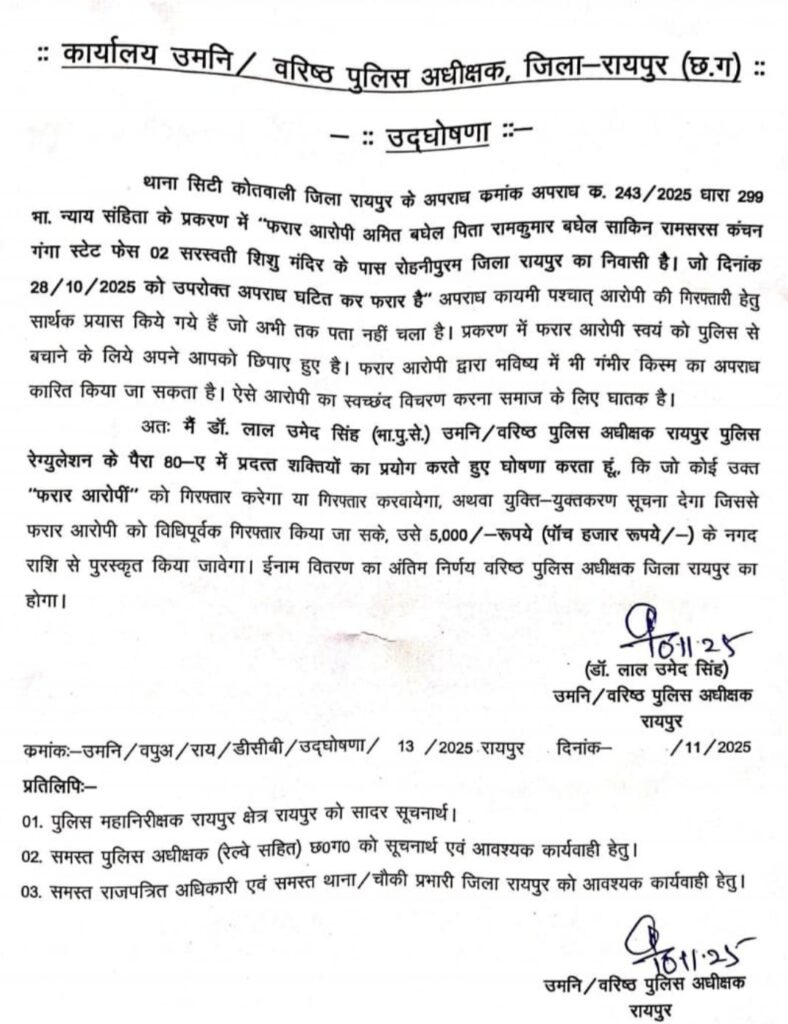 :: कार्यालय उमनि/ वरिष्ठ पुलिस अधीक्षक, जिला–रायपुर (छ.ग) ::
– :: उद्घोषणा ::–
थाना सिटी कोतवाली जिला रायपुर के अपराध कमांक अपराध क. 243/2025 धारा 299
भा. न्याय संहिता के प्रकरण में "फरार आरोपी अमित बघेल पिता रामकुमार बघेल साकिन रामसरस कंचन
गंगा स्टेट फेस 02 सरस्वती शिशु मंदिर के पास रोहनीपुरम जिला रायपुर का निवासी है। जो दिनांक
28/10/2025 को उपरोक्त अपराध घटित कर फरार है" अपराध कायमी पश्चात् आरोपी की गिरफ्तारी हेतु
सार्थक प्रयास किये गये हैं जो अभी तक पता नहीं चला है। प्रकरण में फरार आरोपी स्वयं को पुलिस से
बचाने के लिये अपने आपको छिपाए हुए है। फरार आरोपी द्वारा भविष्य में भी गंभीर किस्म का अपराध
कारित किया जा सकता है। ऐसे आरोपी का स्वच्छंद विचरण करना समाज के लिए घातक है।
अतः मैं डॉ. लाल उमेद सिंह (भा.पु.से.) उमनि/वरिष्ठ पुलिस अधीक्षक रायपुर पुलिस
रेग्युलेशन के पैरा 80–ए में प्रदत्त शक्तियों का प्रयोग करते हुए घोषणा करता हूं, कि जो कोई उक्त
"फरार आरोपीं" को गिरफ्तार करेगा या गिरफ्तार करवायेगा, अथवा युक्ति–युक्तकरण सूचना देगा जिससे
फरार आरोपी को विधिपूर्वक गिरफ्तार किया जा सके, उसे 5,000/–रूपये (पॉच हजार रूपये/–) के नगद
राशि से पुरस्कृत किया जावेगा। ईनाम वितरण का अंतिम निर्णय वरिष्ठ पुलिस अधीक्षक जिला रायपुर का
होगा।
10.11.25
(डॉ. लाल उमेद सिंह)
उमनि/वरिष्ठ पुलिस अधीक्षक
रायपुर
कमांकः–उमनि/वपुअ/राय/डीसीबी/उद्घोषणा/ 13 /2025 रायपुर दिनांक– /11/2025
प्रतिलिपिः–
01. पुलिस महानिरीक्षक रायपुर क्षेत्र रायपुर को सादर सूचनार्थ।
02. समस्त पुलिस अधीक्षक (रेल्वे सहित) छ०ग० को सूचनार्थ एवं आवश्यक कार्यवाही हेतु।
03. समस्त राजपत्रित अधिकारी एवं समस्त थाना/चौकी प्रभारी जिला रायपुर को आवश्यक कार्यवाही हेतु।
10.11.25
उमनि/वरिष्ठ पुलिस अधीक्षक
रायपुर